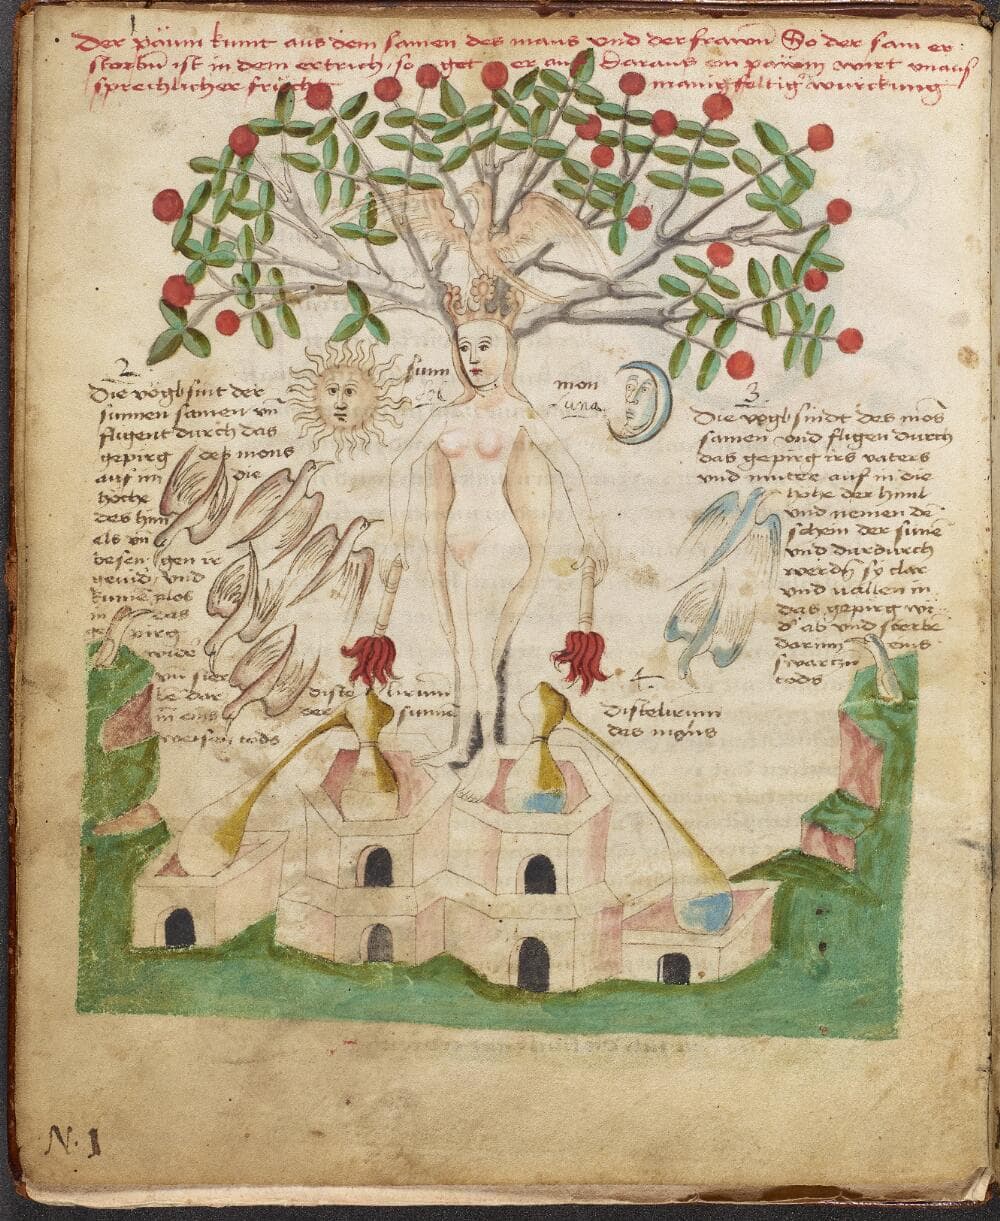 Der paum kumt aus dem samen des mans vnd der frawen So der sam er
storben ist in dem ertrich so get er auf Daraus ein pawm wirt vnaus
sprechlicher frücht manigfeltig würckung
sunn
Sol
mon
Luna
2
Die vögl sint der
sunnen samen vn
fligent durch das
gepirg des mons
auf in die
höche
des him
els vn
gen ir
vnd
plos
in das
pirg
wider
vn ster
be dar
in eins
weisen tods
3
Die vogl sindt des mons
samen vnd fligen durch
das gepirg irs vaters
vnd muter auf in die
hohe der himl
vnd nemen de
schein der sunne
vnd durdurch
werdn so clar
vnd vallen in
das gepirg wi
d ab vnd sterbe
darinn eins
swartzn
tods
distelirum
der sunne
4
Distelirum
des mons
N. 1